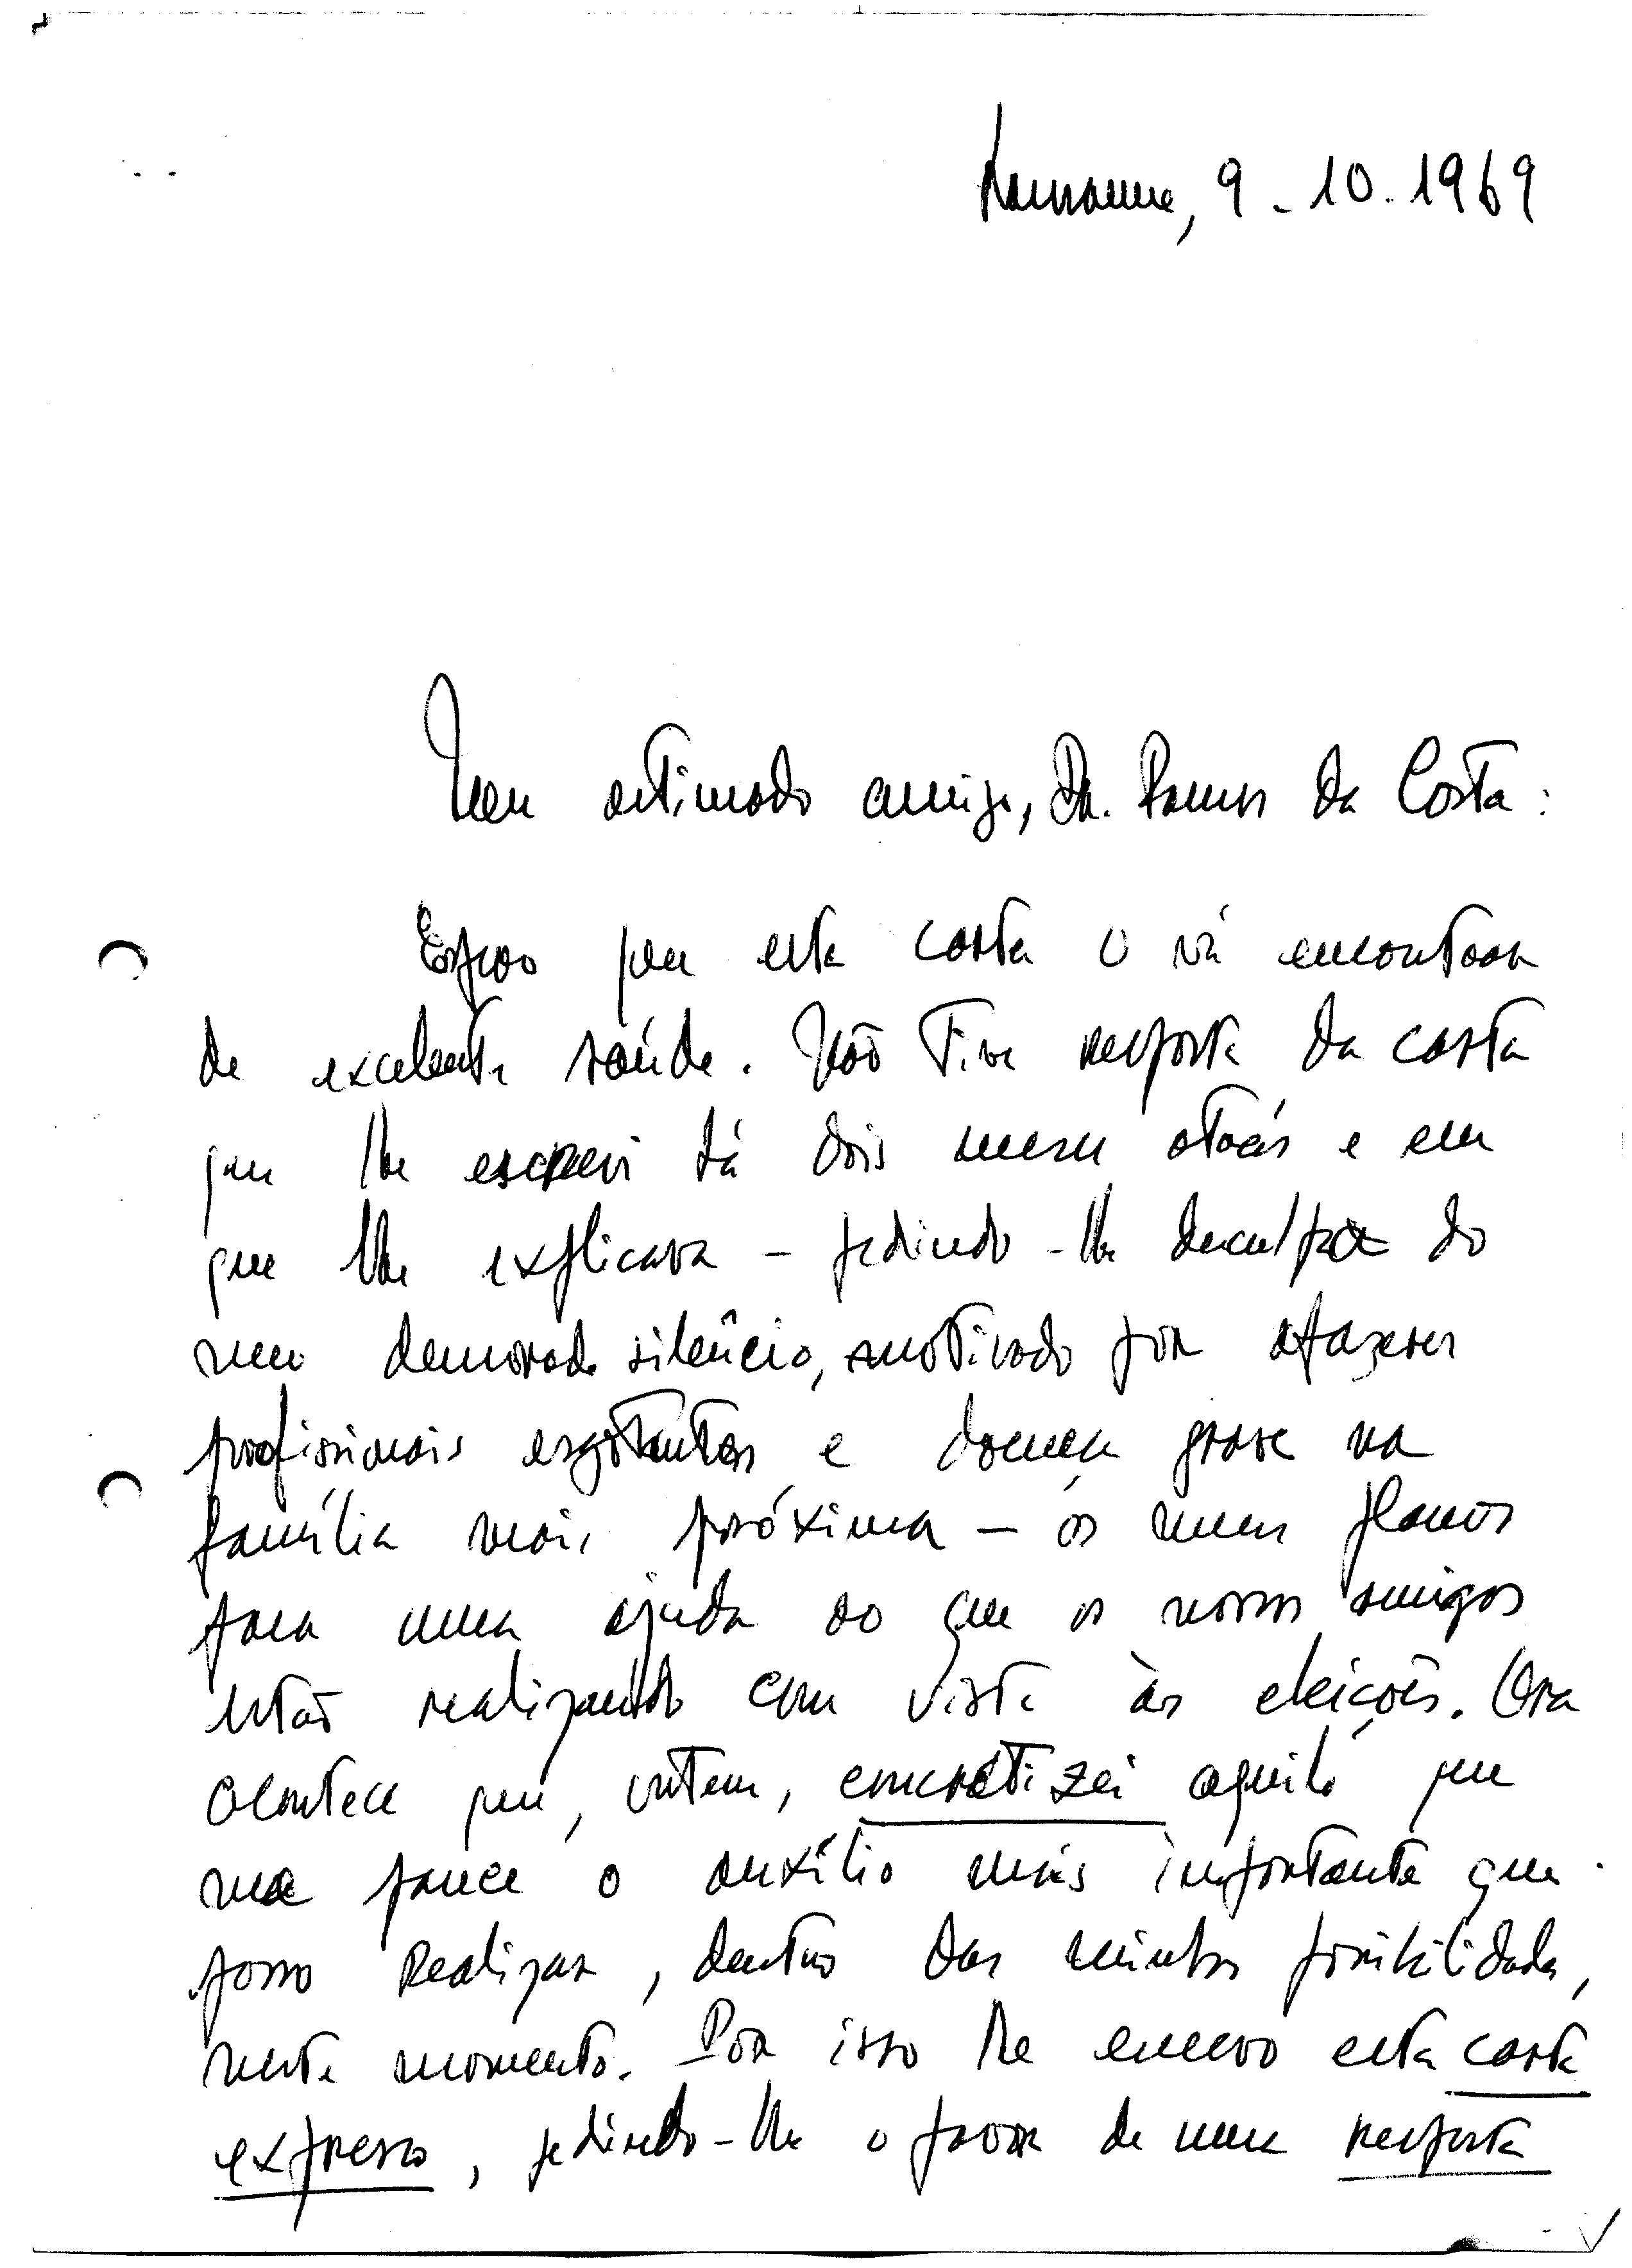 Lausanne, 9-10.1969
Meu estimado amigo, Dr. Ramos da Costa:
Espero que esta carta o vá encontrar
de excelente saúde. Não tive resposta da carta
que lhe escrevi há dois meses atrás e em
que lhe explicava - pedindo-lhe desculpa do
meu demorado silêncio, motivado por afazeres
profissionais esgotantes e doença grave na
família mais próxima - os meus planos
para uma ajuda ao que os nossos amigos
estão realizando com vista às eleições. Ora
acontece que, ontem, concretizei aquilo que
me parece o auxílio mais importante que
posso realizar, dentro das minhas possibilidades,
neste momento. Por isso lhe escrevo esta carta
expresso, pedindo-lhe o favor de uma resposta